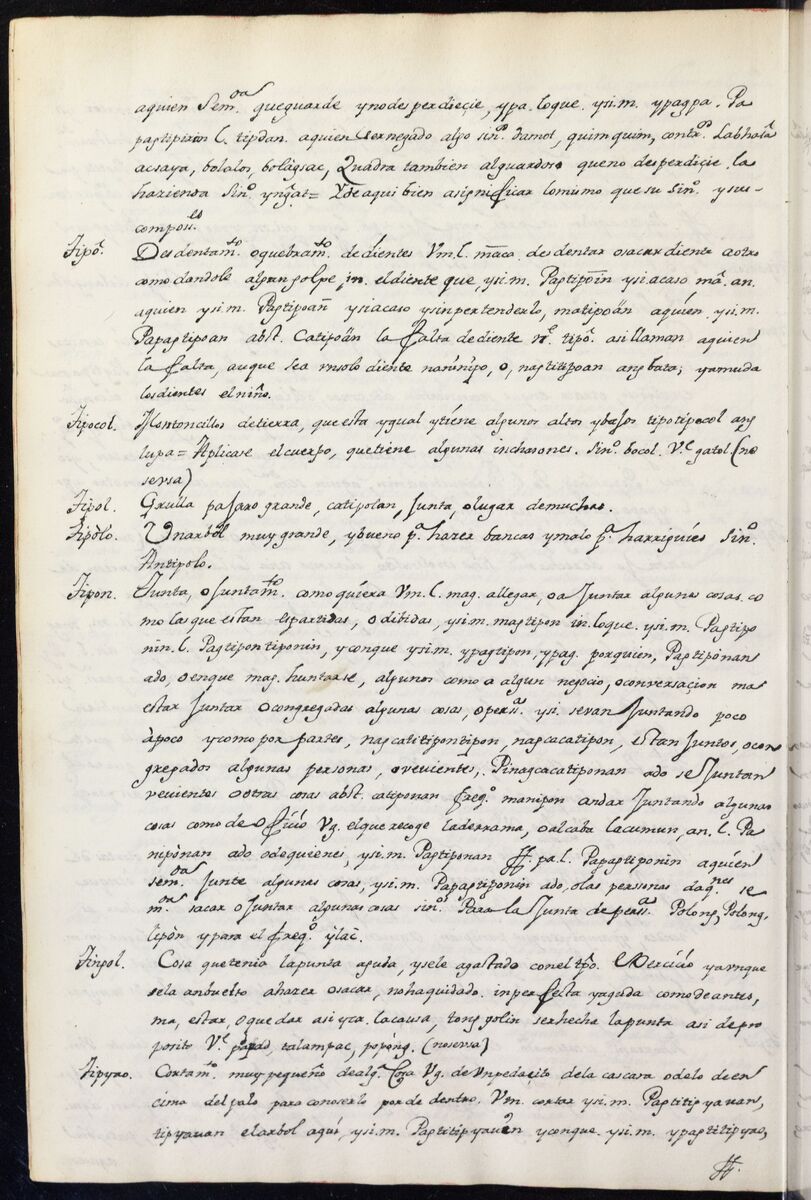 aquien Sem.da que guarde y no desperdiçie, ypa. loque. ysi.m. ypagpa. Pa
pagtipirin l. tipdan. aquien ser negado algo sin.o damot, quimquim, contr.o Labhasa
acsaya, bolalos, bolagsac, Quadra tambien alguardoso que no desperdiçie. la
hazienda Sin.o yngat= Yde aqui bien a significar lo mismo que su sin.o y sus
compos.es
Tipo. Desdentam.to o quebram.to de dientes Vm. l. maca. desdentar o sacar diente a otro
como dandole algun golpe, in. el diente que, ysi.m. Pagtipoin ysi acaso ma. an.
aquien ysi.m. Pagtipoan ysi acaso ysin pertenderlo, matipoan aquien. ysi.m.
Papagtipoan abst. Catipoan la falta de diente tipo. asi llaman aquien
la falta, aunque sea un solo diente o, nagtitipoan ang bata; ya muda
los dientes el niño.
Tipocol. Montoncillos de tierra, que esta ygual y tiene algunos altos y baxos tipotipocol ang
lupa= Aplicase el cuerpo, que tiene algunas inchasones. Sin.o bocol. V.e gatol. (no
se usa)
Tipol. Grulla paxaro grande, catipolan, junta, o lugar de muchos.
Tipolo. Un arbol muy grande, y bueno p.a hazer bancas y malo p.a harriguies Sin.o
Antipolo.
Tipon. Junta, o juntam.to como quiera Vm. l. mag. allegar, o a juntar algunas cosas. co
mo las que estan esparzidas, o dibididas, ysi.m. magtipon in. loque. ysi.m. Pagtipo
nin. l. Pagtipontiponin, y conque ysi.m. ypagtipon, ypag. porquien, Pagtiponan
ado, o en que mag. huntarse, algunos como a algun negocio, o conversacion ma
estar juntar o congregadas algunas cosas, o pers.as ysi se van juntando poco
àpoco y como por partes, nagcatitipontipon, nagcacatipon, estan juntos, o con
gregados algunas personas, o vevientes,. Pinagcacatiponan ado se juntan
vevientes o otras cosas abst. catiponan freq.o manipon andar juntando algunas
cosas como de oficio Vg. el que recoge la derrama, o alcabala comun, an. l. Pa
niponan ado o de quienes, ysi.m. Pagtiponan ff. pa. l. Papagtiponin aquien
sem.da junte algunas cosas, ysi.m. Papagtiponin ado, o las personas daq.nes se
m.da sacar o juntar algunas cosas sin.o Para la junta de pers.as Polong, Polong,
lipòn y para el freq.o ylac.
Tinpol. Cosa que tenia la punta aguda, y se le agastado con el tpo. exercicio y aunque
se la anbuelto ahazer o sacar, no ha quidado. in perfecta y aguda como de antes,
ma, estar, o quedar asi yca. la causa, tongpolin ser hecha la punta asi de pro
posito V.e talampac, popong. (no se usa)
Tipyao. Cortam.to muy pequeño de alg. cosa Vg. de un pedaçito de la cascara o de lo de en
cima del palo para conoserlo por de dentro. Vm. cortar ysi.m. Pagtitipyauan,
tipyauan el arbol aqui, ysi.m. Pagtitipyauin y conque ysi.m. ypagtitipyao,
ff.